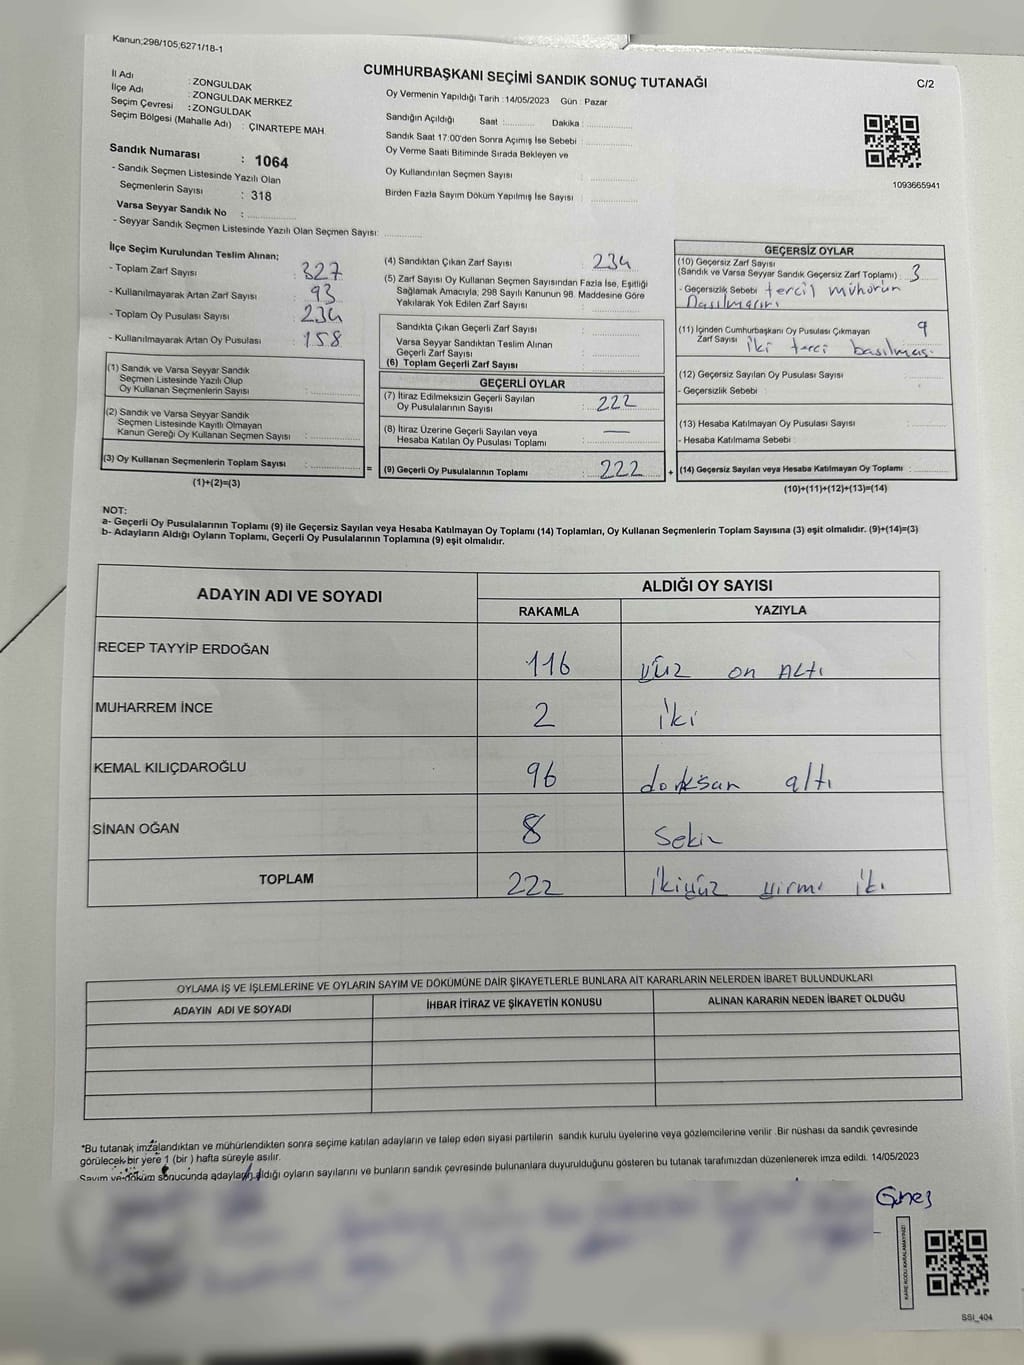 Kanun;298/105;6271/18-1
CUMHURBAŞKANI SEÇİMİ SANDIK SONUÇ TUTANAĞI
C/2
İl Adı : ZONGULDAK
İlçe Adı : ZONGULDAK MERKEZ
Seçim Çevresi : ZONGULDAK
Seçim Bölgesi (Mahalle Adı) : ÇINARTEPE MAH.
Oy Vermenin Yapıldığı Tarih : 14/05/2023 Gün : Pazar
Sandığın Açıldığı Saat :........... Dakika :..............
Sandık Saat 17:00'den Sonra Açımış İse Sebebi :..............
Oy Verme Saati Bitiminde Sırada Bekleyen ve
Oy Kullandırılan Seçmen Sayısı :..............
Birden Fazla Sayım Döküm Yapılmış İse Sayısı :..............
1093665941
Sandık Numarası : 1064
- Sandık Seçmen Listesinde Yazılı Olan
Seçmenlerin Sayısı : 318
Varsa Seyyar Sandık No :..............
- Seyyar Sandık Seçmen Listesinde Yazılı Olan Seçmen Sayısı: ...........
İlçe Seçim Kurulundan Teslim Alınan;
- Toplam Zarf Sayısı : 327
- Kullanılmayarak Artan Zarf Sayısı : 93
- Toplam Oy Pusulası Sayısı : 234
- Kullanılmayarak Artan Oy Pusulası : 158
(1) Sandık ve Varsa Seyyar Sandık
Seçmen Listesinde Yazılı Olup
Oy Kullanan Seçmenlerin Sayısı :..............
(2) Sandık ve Varsa Seyyar Sandık
Seçmen Listesinde Kayıtlı Olmayan
Kanun Gereği Oy Kullanan Seçmen Sayısı :..............
(3) Oy Kullanan Seçmenlerin Toplam Sayısı :..............
(1)+(2)=(3)
=
(4) Sandıktan Çıkan Zarf Sayısı : 234
(5) Zarf Sayısı Oy Kullanan Seçmen Sayısından Fazla İse, Eşitliği
Sağlamak Amacıyla, 298 Sayılı Kanunun 98. Maddesine Göre
Yakılarak Yok Edilen Zarf Sayısı :..............
Sandıkta Çıkan Geçerli Zarf Sayısı :..............
Varsa Seyyar Sandıktan Teslim Alınan
Geçerli Zarf Sayısı :..............
(6) Toplam Geçerli Zarf Sayısı :..............
GEÇERLİ OYLAR
(7) İtiraz Edilmeksizin Geçerli Sayılan
Oy Pusulalarının Sayısı : 222
(8) İtiraz Üzerine Geçerli Sayılan veya
Hesaba Katılan Oy Pusulası Toplamı : —
(9) Geçerli Oy Pusulalarının Toplamı : 222
+
GEÇERSİZ OYLAR
(10) Geçersiz Zarf Sayısı
(Sandık ve Varsa Seyyar Sandık Geçersiz Zarf Toplamı) : 3
- Geçersizlik Sebebi : tercil mühorün
(11) İçinden Cumhurbaşkanı Oy Pusulası Çıkmayan
Zarf Sayısı : 9
iki terci basılmas.
(12) Geçersiz Sayılan Oy Pusulası Sayısı :..............
- Geçersizlik Sebebi :
(13) Hesaba Katılmayan Oy Pusulası Sayısı :..............
- Hesaba Katılmama Sebebi :
(14) Geçersiz Sayılan veya Hesaba Katılmayan Oy Toplamı :..............
(10)+(11)+(12)+(13)=(14)
NOT:
a- Geçerli Oy Pusulalarının Toplamı (9) ile Geçersiz Sayılan veya Hesaba Katılmayan Oy Toplamı (14) Toplamları, Oy Kullanan Seçmenlerin Toplam Sayısına (3) eşit olmalıdır. (9)+(14)=(3)
b- Adayların Aldığı Oyların Toplamı, Geçerli Oy Pusulalarının Toplamına (9) eşit olmalıdır.
ADAYIN ADI VE SOYADI ALDIĞI OY SAYISI
RAKAMLA YAZIYLA
RECEP TAYYİP ERDOĞAN 116 yüz on Altı
MUHARREM İNCE 2 iki
KEMAL KILIÇDAROĞLU 96 dorksan altı
SİNAN OĞAN 8 Sekiz
TOPLAM 222 ikiyüz yirmi iki
OYLAMA İŞ VE İŞLEMLERİNE VE OYLARIN SAYIM VE DÖKÜMÜNE DAİR ŞİKAYETLERLE BUNLARA AİT KARARLARIN NELERDEN İBARET BULUNDUKLARI
ADAYIN ADI VE SOYADI İHBAR İTİRAZ VE ŞİKAYETİN KONUSU ALINAN KARARIN NEDEN İBARET OLDUĞU
*Bu tutanak imzalandıktan ve mühürlendikten sonra seçime katılan adayların ve talep eden siyasi partilerin sandık kurulu üyelerine veya gözlemcilerine verilir. Bir nüshası da sandık çevresinde
görülecek bir yere 1 (bir ) hafta süreyle asılır.
Sayım ve döküm sonucunda adayların aldığı oyların sayılarını ve bunların sandık çevresinde bulunanlara duyurulduğunu gösteren bu tutanak tarafımızdan düzenlenerek imza edildi. 14/05/2023
Güneş
KARE KODU KARALAMAYINIZ!
SSI_404